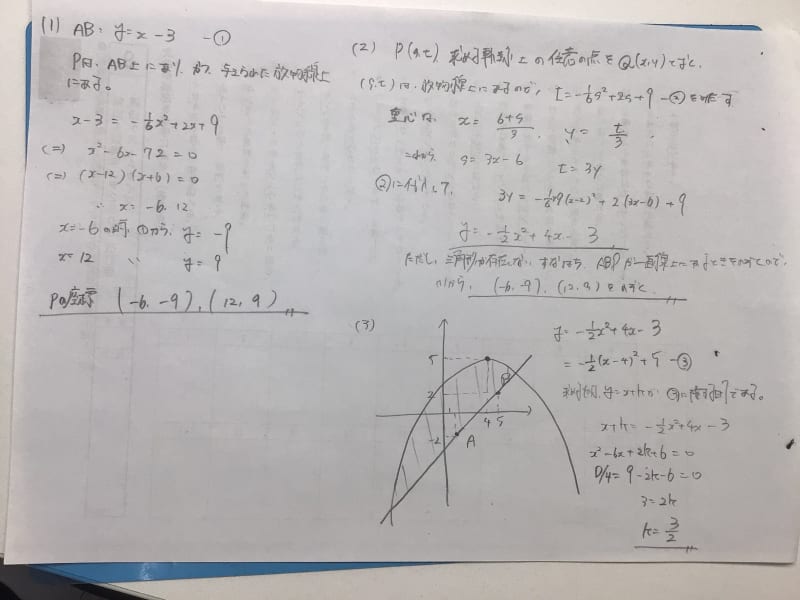 (1) AB: y = x - 3 - ①
Pは、AB上にあり、かつ、与えられた放物線上
にある。
x-3 = -1/6x²+2x+9
⇔ x²-6x-72=0
⇔ (x-12)(x+6)=0
∴ x=-6, 12
x=-6の時、①から、y=-9
x=12 〃 y=9
Pの座標 (-6, -9), (12, 9)
(2) P(s,t), 求める軌跡上の任意の点をQ(x,y)とすと、
(s,t)は、放物線上にあるので、t=-1/6s²+2s+9 -②を満たす
重心は、 x=(6+s)/3, y=t/3.
これから s=3x-6 t=3y
②に代入して、 3y=-1/6・9(x-2)²+2(3x-6)+9
y=-1/2x²+4x-3
ただし、三角形が存在しない、すなわち、ABPが一直線上に
(-6, -9), (12, 9)をのぞく
(3)
5
2
-2
1
4 5
A
B
y=-1/2x²+4x-3
=-1/2(x-4)²+5 -③
y=x+kが ③に接する時である。
x+k=-1/2x²+4x-3
x²-6x+2k+6=0
D/4=9-2k-6=0
3=2k
k=3/2